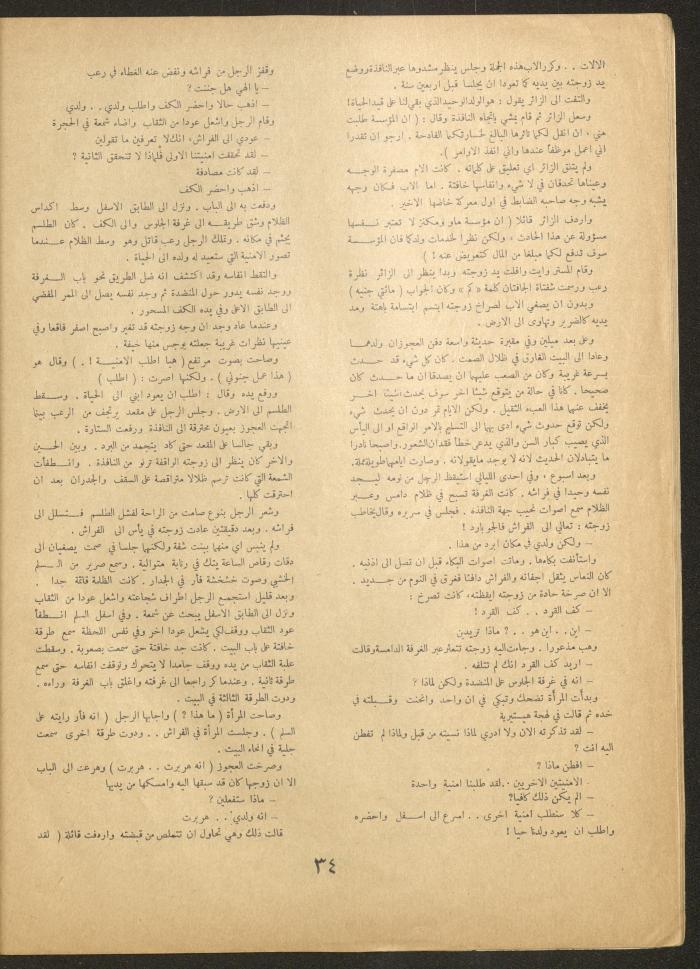 الالات . . وكرر الاب هذه الجملة وجلس ينظر مشدوها عبر النافذة ووضع
يد زوجته بين يديه كما تعودا ان يجلسا قبل اربعين سنة .
والتفت الى الزائر يقول : هو الولد الوحيد الذي بقي لنا على قيد الحياة !
وسعل الزائر ثم قام يمشي باتجاه النافذة وقال : ( ان المؤسسة طلبت
مني ، ان انقل لكما تاثرها البالغ لخسارتكما الفادحة . ارجو ان تقدرا
اني اعمل موظفاً عندها واني انفذ الاوامر ) .
ولم يتلق الزائر اي تعليق على كلماته . كانت الام مصفرة الوجه
وعيناها تحدقان في لا شيء وانفاسها خافتة . اما الاب فكان وجهه
يشبه وجه صاحبه الضابط في اول معركة خاضها الاخير .
واردف الزائر قائلا ( ان مؤسسة ماو ومكنز لا تعتبر نفسها
مسؤولة عن هذا الحادث ، ولكن نظرا لخدمات ولدكما فان المؤسسة
سوف تدفع لكما مبلغا من المال كتعويض عنه ! )
وقام المستر وايت وافلت يد زوجته وبدا ينظر الى الزائر نظرة
رعب ورسمت شفتاه الجافتان كلمة « كم » وكان الجواب ( مائتي جنيه )
وبدون ان يصغي الاب لصراخ زوجته ابتسم ابتسامة باهتة ومد
يديه كالضرير وتهاوى الى الارض .
وعلى بعد ميلين وفي مقبرة حديثة واسعة دفن العجوزان ولدهما
وعادا الى البيت الغارق في ظلال الصمت . كان كل شيء قد حدث
بسرعة غريبة وكان من الصعب عليهما ان يصدقا ان ما حدث كان
صحيحا . كانا في حالة من يتوقع شيئا اخر سوف يحدث شيئا اخر
يخفف عنهما هذا العبء الثقيل . ولكن الايام تمر دون ان يحدث شيء
ولكن توقع حدوث شيء ادى بهما الى التسليم بالامر الواقع او الى اليأس
الذي يصيب كبار السن والذي يدعى خطأ فقدان الشعور . واصبحا نادرا
ما يتبادلان الحديث لانه لا يوجد ما يقولانه . وصارت ايامهما طويلة مملة .
وبعد اسبوع ، وفي احدى الليالي استيقظ الرجل من نومه ليجد
نفسه وحيدا في فراشه . كانت الغرفة تسبح في ظلام دامس وعبر
الظلام سمع اصوات نحيب جهة النافذة . فجلس في سريره وقال يخاطب
زوجته : تعالي الى الفراش فالجو بارد !
– ولكن ولدي في مكان ابرد من هذا .
واستأنفت بكاءها . وماتت اصوات البكاء قبل ان تصل الى اذنيه .
كان النعاس يثقل اجفانه والفراش دافئا فغرق في النوم من جديد .
الا ان صرخة حادة من زوجته ايقظته ، كانت تصرخ :
– كف القرد . . كف القرد !
– اين . . اين هو . . ؟ ماذا تريدين
وهب مذعورا . وجاءت اليه زوجته تتعثر عبر الغرفة الدامسة وقالت
– اريد كف القرد انك لم تتلفه .
– انه في غرفة الجلوس على المنضدة ولكن لماذا ؟
وبدأت المرأة تضحك وتبكي في ان واحد وانحنت وقبلته في
خده ثم قالت في لهجة هيستيرية
– لقد تذكرته الان ولا ادري لماذا نسيته من قبل ولماذا لم تفطن
اليه انت ?
– افطن ماذا ؟
الامنيتين الاخريين . . لقد طلبنا امنية واحدة
– الم يكن ذلك كافيا ؟
– كلا سنطلب امنية اخرى . . اسرع الى اسفل واحضره
واطلب ان يعود ولدنا حيا !
وقفز الرجل من فراشه ونفض عنه الغطاء في رعب
– يا الهي هل جننت ؟
– اذهب حالا واحضر الكف واطلب ولدي . . ولدي
وقام الرجل واشعل عودا من الثقاب واضاء شمعة في الحجرة
– عودي الى الفراش ، انك لا تعرفين ما تقولين
– لقد تحققت امنيتنا الاولى فلماذا لا تتحقق الثانية ؟
– لقد كانت مصادفة
– اذهب واحضر الكف
ودفعت به الى الباب . ونزل الى الطابق الاسفل وسط اكداس
الظلام وشق طريقه الى غرفة الجلوس والى الكف . كان الطلسم
يجثم في مكانه . وتملك الرجل رعب قاتل وهو وسط الظلام عندما
تصور الامنية التي ستعيد له ولده الى الحياة .
والتقط انفاسه وقد اكتشف انه ضل الطريق نحو باب الغرفة
ووجد نفسه يدور حول المنضدة ثم وجد نفسه يصل الى الممر المفضي
الى الطابق الاعلى وفي يده الكف المسحور .
وعندما عاد وجد ان وجه زوجته قد تغير واصبح اصفر فاقعا وفي
عينيها نظرات غريبة جعلته يوجس منها خيفة .
وصاحت بصوت مرتفع ( هيا اطلب الامنية ! . ) وقال هو
( هذا عمل جنوني ) . ولكنها اصرت : ( اطلب )
ورفع يده وقال : اطلب ان يعود ابني الى الحياة . وسقط
الطلسم الى الارض . وجلس الرجل على مقعد يرتجف من الرعب بينما
اتجهت العجوز بعيون محترقة الى النافذة ورفعت الستارة .
وبقي جالسا على المقعد حتى كاد يتجمد من البرد . وبين الحين
والاخر كان ينظر الى زوجته الواقفة ترنو من النافذة . وانطفأت
الشمعة التي كانت ترسم ظلالا متراقصة على السقف والجدران بعد ان
احترقت كلها .
وشعر الرجل بنوع صامت من الراحة لفشل الطلسم فتسلل الى
فراشه . وبعد دقيقتين عادت زوجته في يأس الى الفراش .
ولم ينبس اي منهما ببنت شفة ولكنهما جلسا في صمت يصغيان الى
دقات رقاص الساعة يتك في رتابة متوالية . وسمع صرير من السلم
الخشبي وصوت خشخشة فأر في الجدار . كانت الظلمة قاتمة جدا .
وبعد قليل استجمع الرجل اطراف شجاعته واشعل عودا من الثقاب
ونزل الى الطابق الاسفل يبحث عن شمعة . وفي اسفل السلم انطفأ
عود الثقاب ووقف لكي يشعل عودا اخر وفي نفس اللحظة سمع طرقة
خافتة على باب البيت . كانت جد خافتة حتى سمعت بصعوبة . وسقطت
علبة الثقاب من يده ووقف جامدا لا يتحرك وتوقفت انفاسه حتى سمع
طرقة ثانية . وعندما كر راجعا الى غرفته واغلق باب الغرفة وراءه .
ودوت الطرقة الثالثة في البيت .
وصاحت المرأة ( ما هذا ؟ ) واجابها الرجل ( انه فأر رايته على
السلم ) . وجلست المرأة في الفراش . . ودوت طرقة اخرى سمعت
جلية في انحاء البيت .
وصرخت العجوز ( انه هربرت . . هربرت ) وهرعت الى الباب
الا ان زوجها كان قد سبقها اليه وامسكها من يديها
– ماذا ستفعلين ؟
– انه ولدي . . هربرت
قالت ذلك وهي تحاول ان تتملص من قبضته واردفت قائلة ( لقد
٣٤